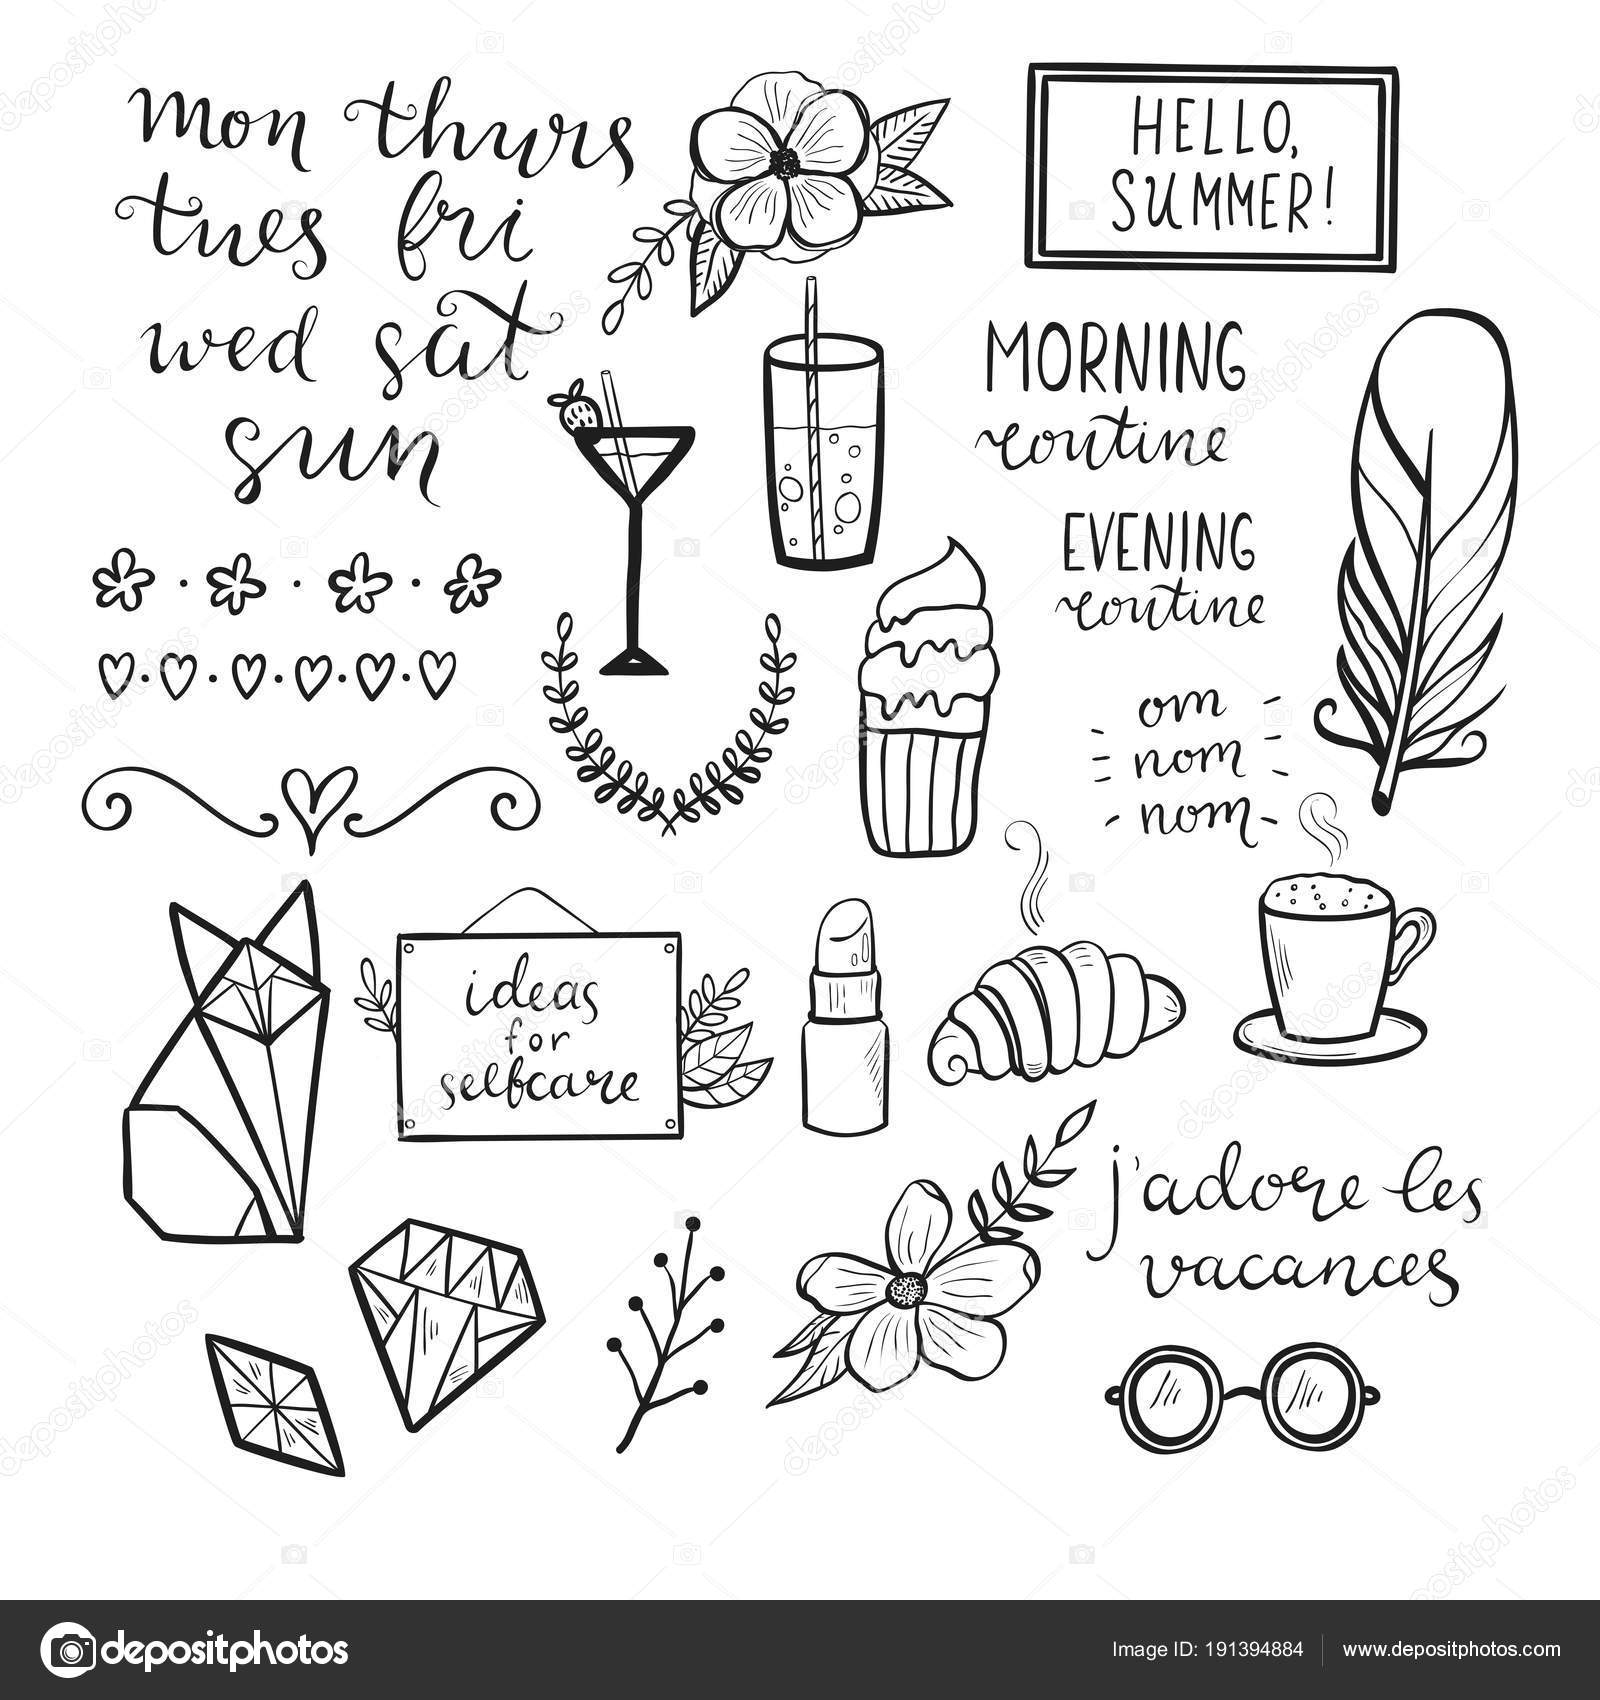 mon thurs
tues fri
wed sat
sun
HELLO,
SUMMER!
MORNING
routine
EVENING
routine
om
nom
nom
ideas
for
selfcare
j'adore les
vacances
depositphotos
Image ID: 191394884
www.depositphotos.com